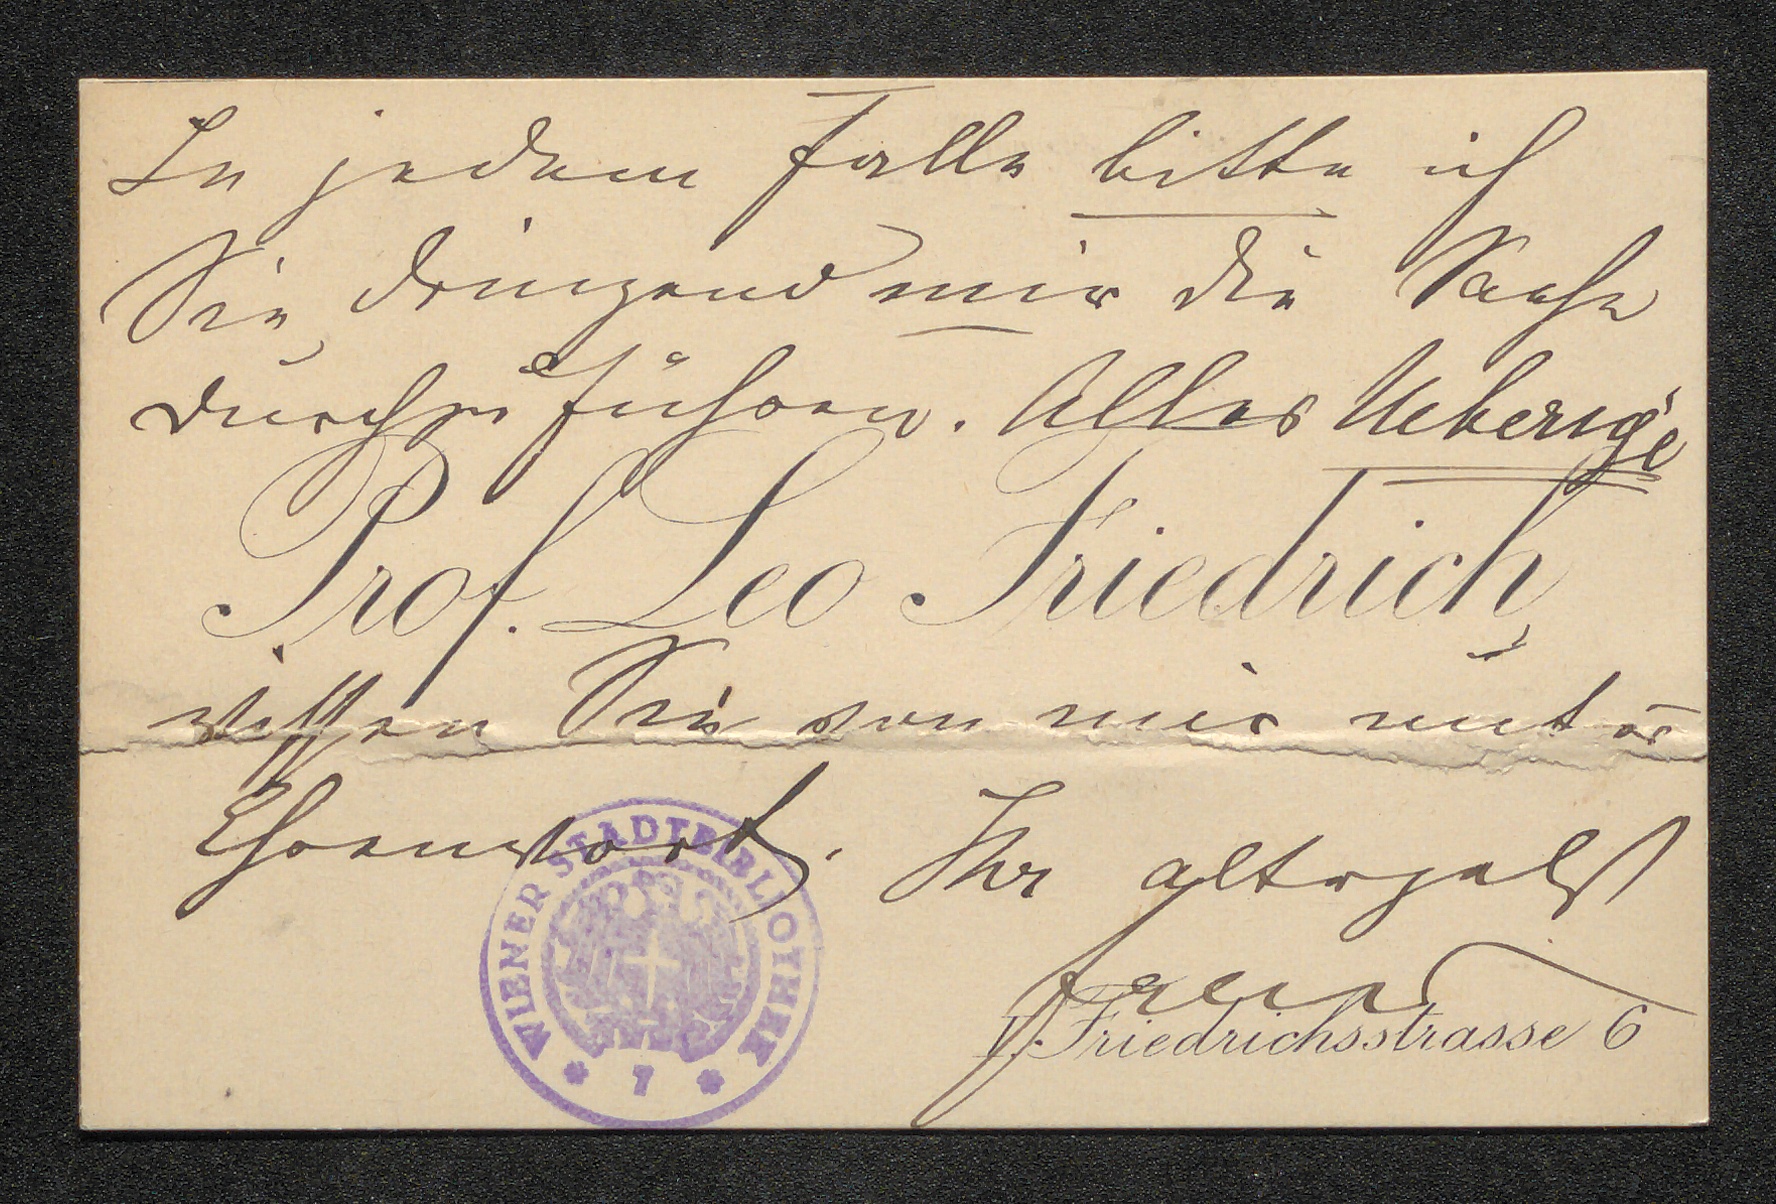 In jedem Falle bitte ich
Sie, dringend mir die Sache
durchzuführen. Alles Ueberige
Prof. Leo Friedrich
wissen Sie von mir unter
Ehrenwort. Ihr
I. Friedrichsstrasse 6
WIENER STADTBIBLIOTHEK
7